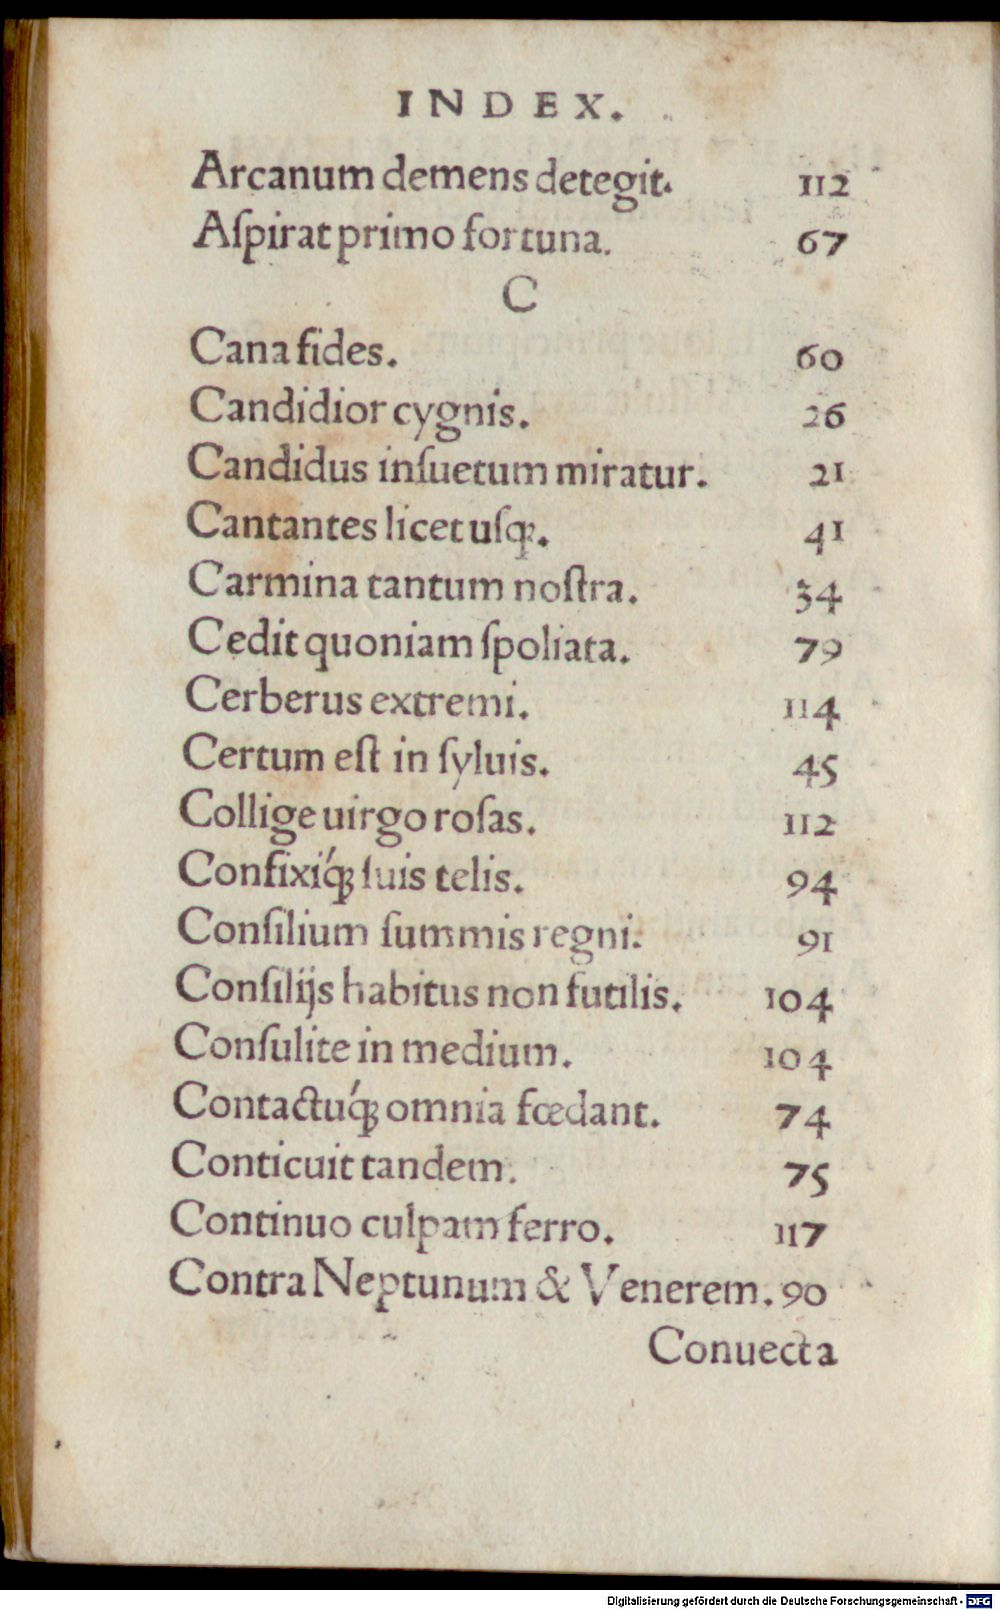 INDEX.
Arcanum demens detegit. 112
Aſpirat primo fortuna. 67
C
Cana fides. 60
Candidior cygnis. 26
Candidus inſuetum miratur. 21
Cantantes licet uſqꝫ. 41
Carmina tantum noſtra. 34
Cedit quoniam ſpoliata. 79
Cerberus extremi. 114
Certum eſt in ſyluis. 45
Collige uirgo roſas. 112
Confixiq́ꝫ ſuis telis. 94
Conſilium ſummis regni. 91
Conſilijs habitus non futilis. 104
Conſulite in medium. 104
Contactuq́ꝫ omnia fœdant. 74
Conticuit tandem. 75
Continuo culpam ferro. 117
Contra Neptunum & Venerem. 90
Conuecta
Digitalisierung gefördert durch die Deutsche Forschungsgemeinschaft - DFG